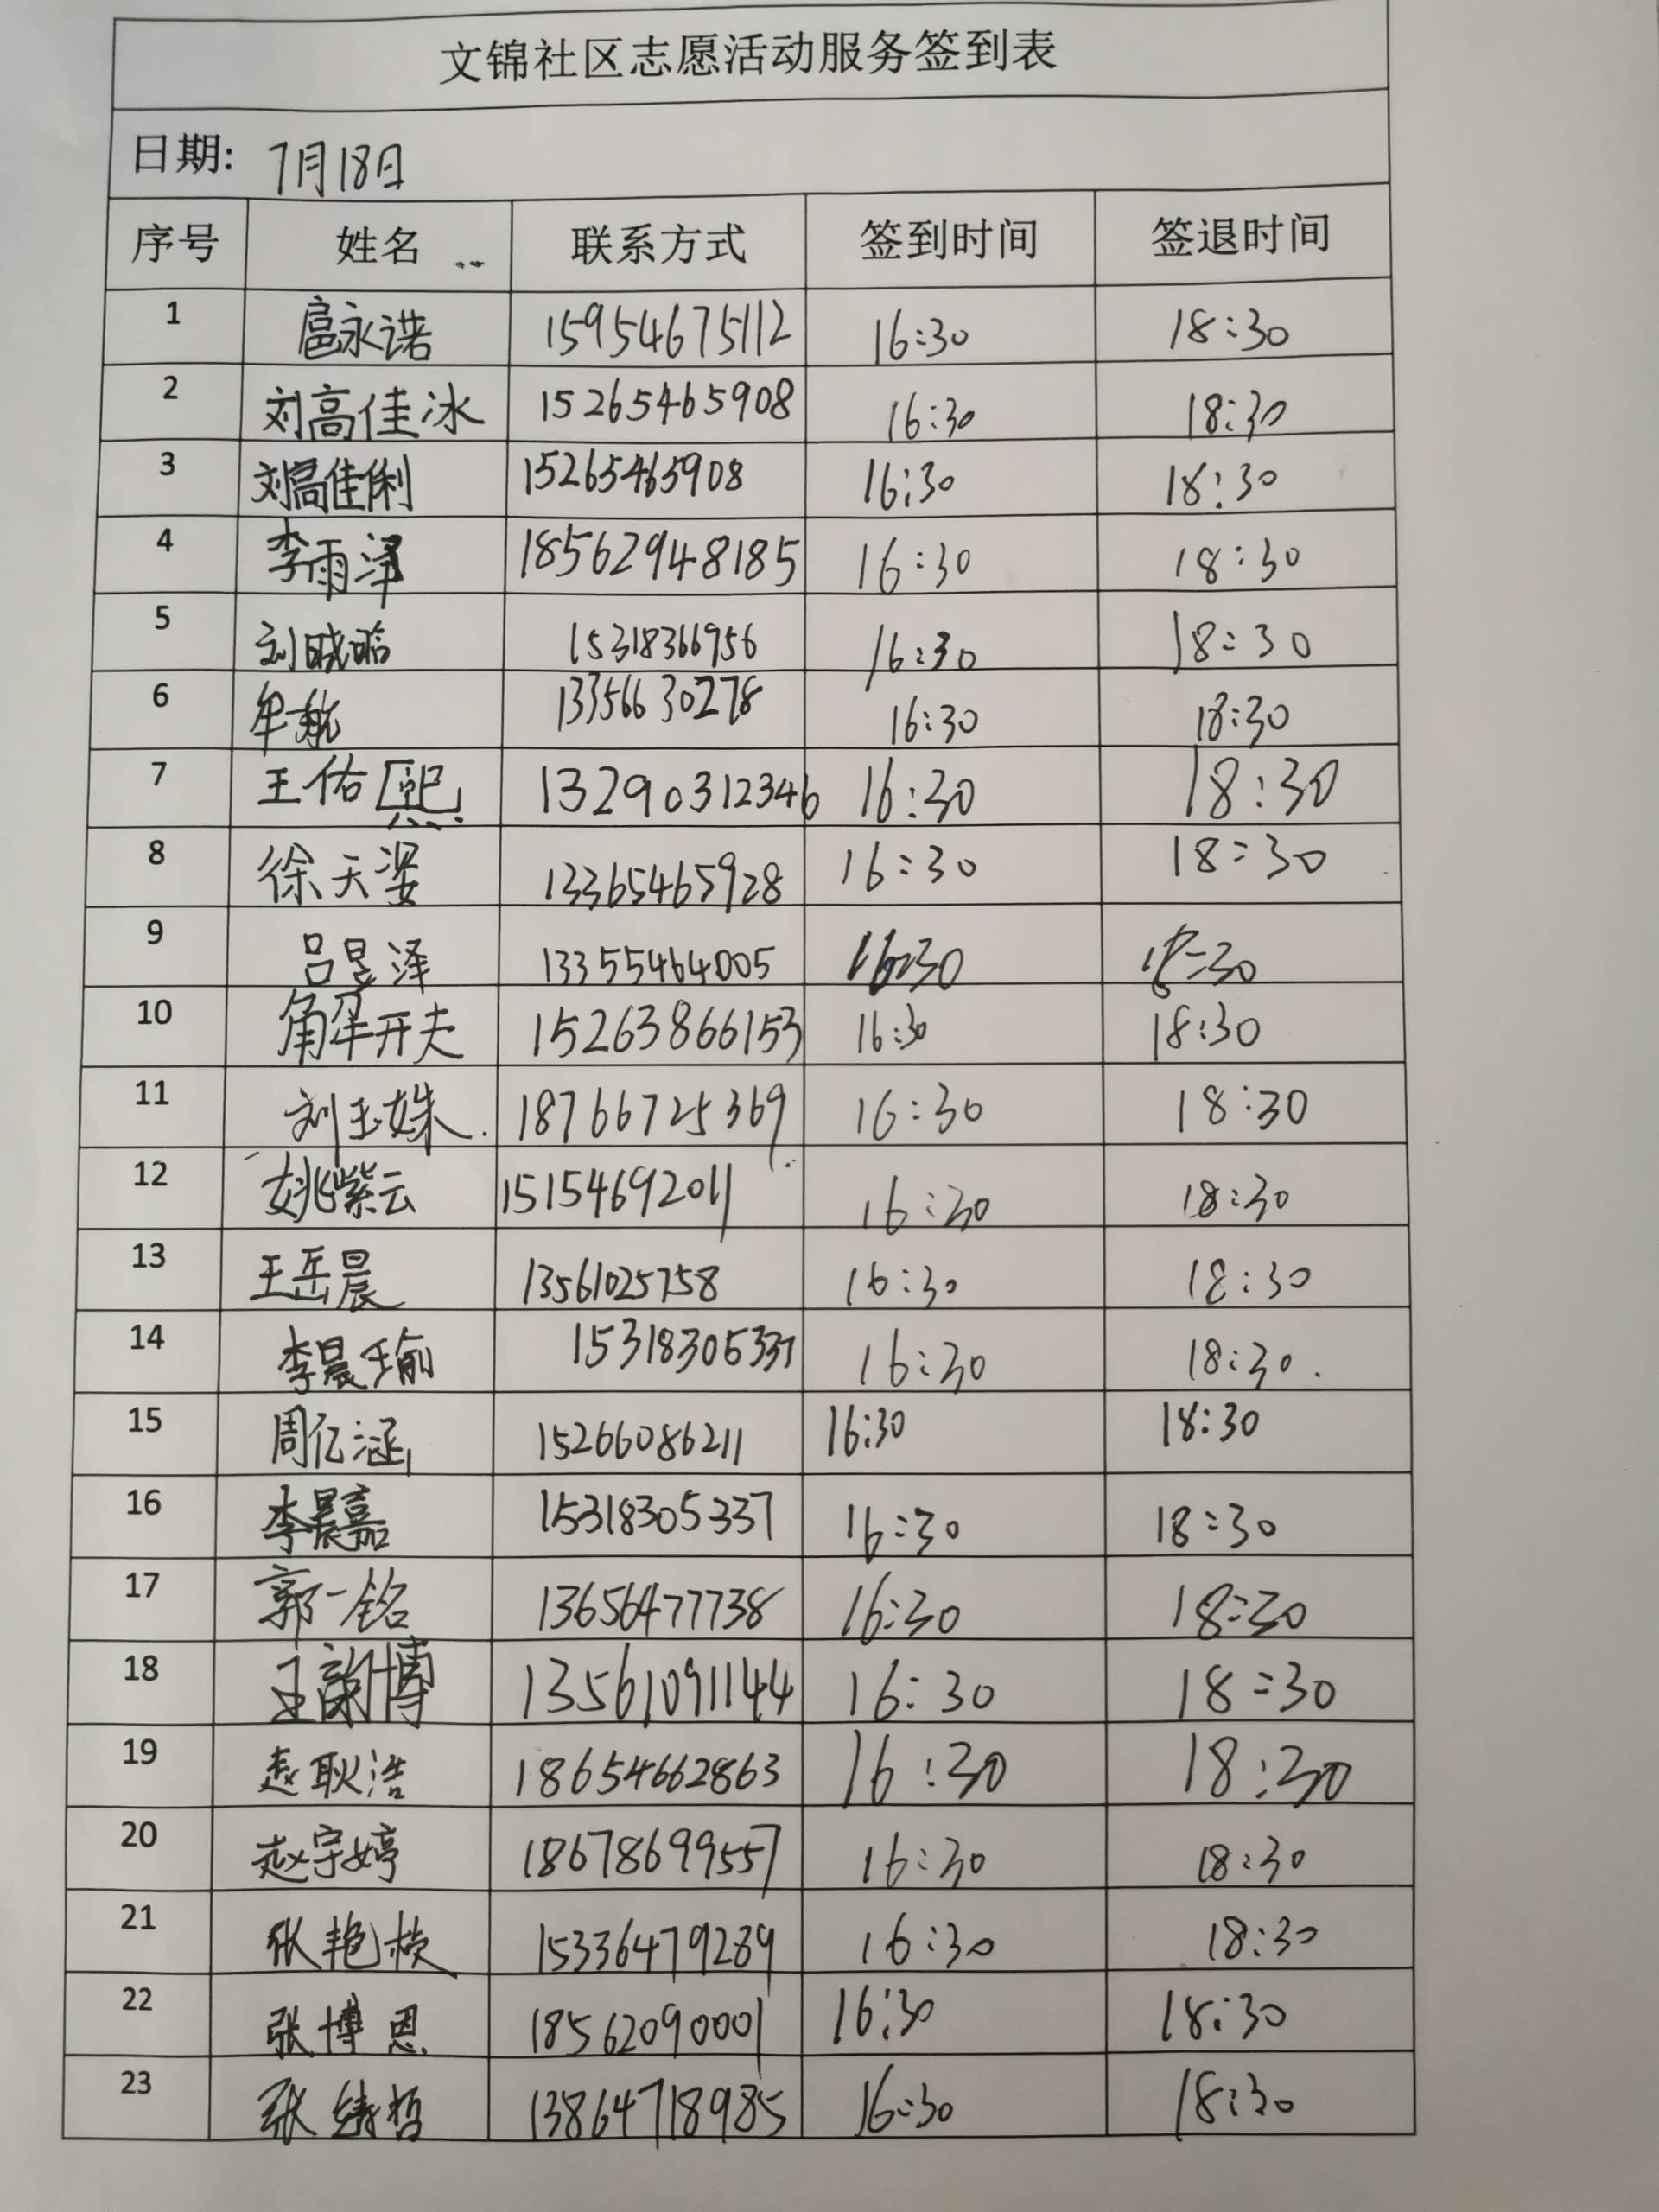 文锦社区志愿活动服务签到表
日期: 7月18日
序号 姓名 联系方式 签到时间 签退时间
1 扈永诺 15954675112 16:30 18:30
2 刘高佳冰 15265465908 16:30 18:30
3 刘高佳俐 15265465908 16:30 18:30
4 李雨泽 18562948185 16:30 18:30
5 刘晓晗 15318366956 16:30 18:30
6 牟航 13356630278 16:30 18:30
7 王佑熙 13290312346 16:30 18:30
8 徐天姿 13365465928 16:30 18:30
9 吕昱泽 13355464005 16:30
10 开夫 15263866153 16:30 18:30
11 刘玉姝 18766725369 16:30 18:30
12 姚紫云 15154692011 16:30 18:30
13 王岳晨 13561025758 16:30 18:30
14 李晨瑜 15318305337 16:30 18:30
15 周亿涵 15266086211 16:30 18:30
16 李晨嘉 15318305337 16:30 18:30
17 郭一铭 13656477738 16:30 18:30
18 王韵博 13561091144 16:30 18:30
19 赵耿浩 18654662863 16:30 18:30
20 赵宇婷 18678699557 16:30 18:30
21 张艳枝 15336479289 16:30 18:30
22 张博恩 18562090001 16:30 18:30
23 张 哲 13864718985 16:30 18:30